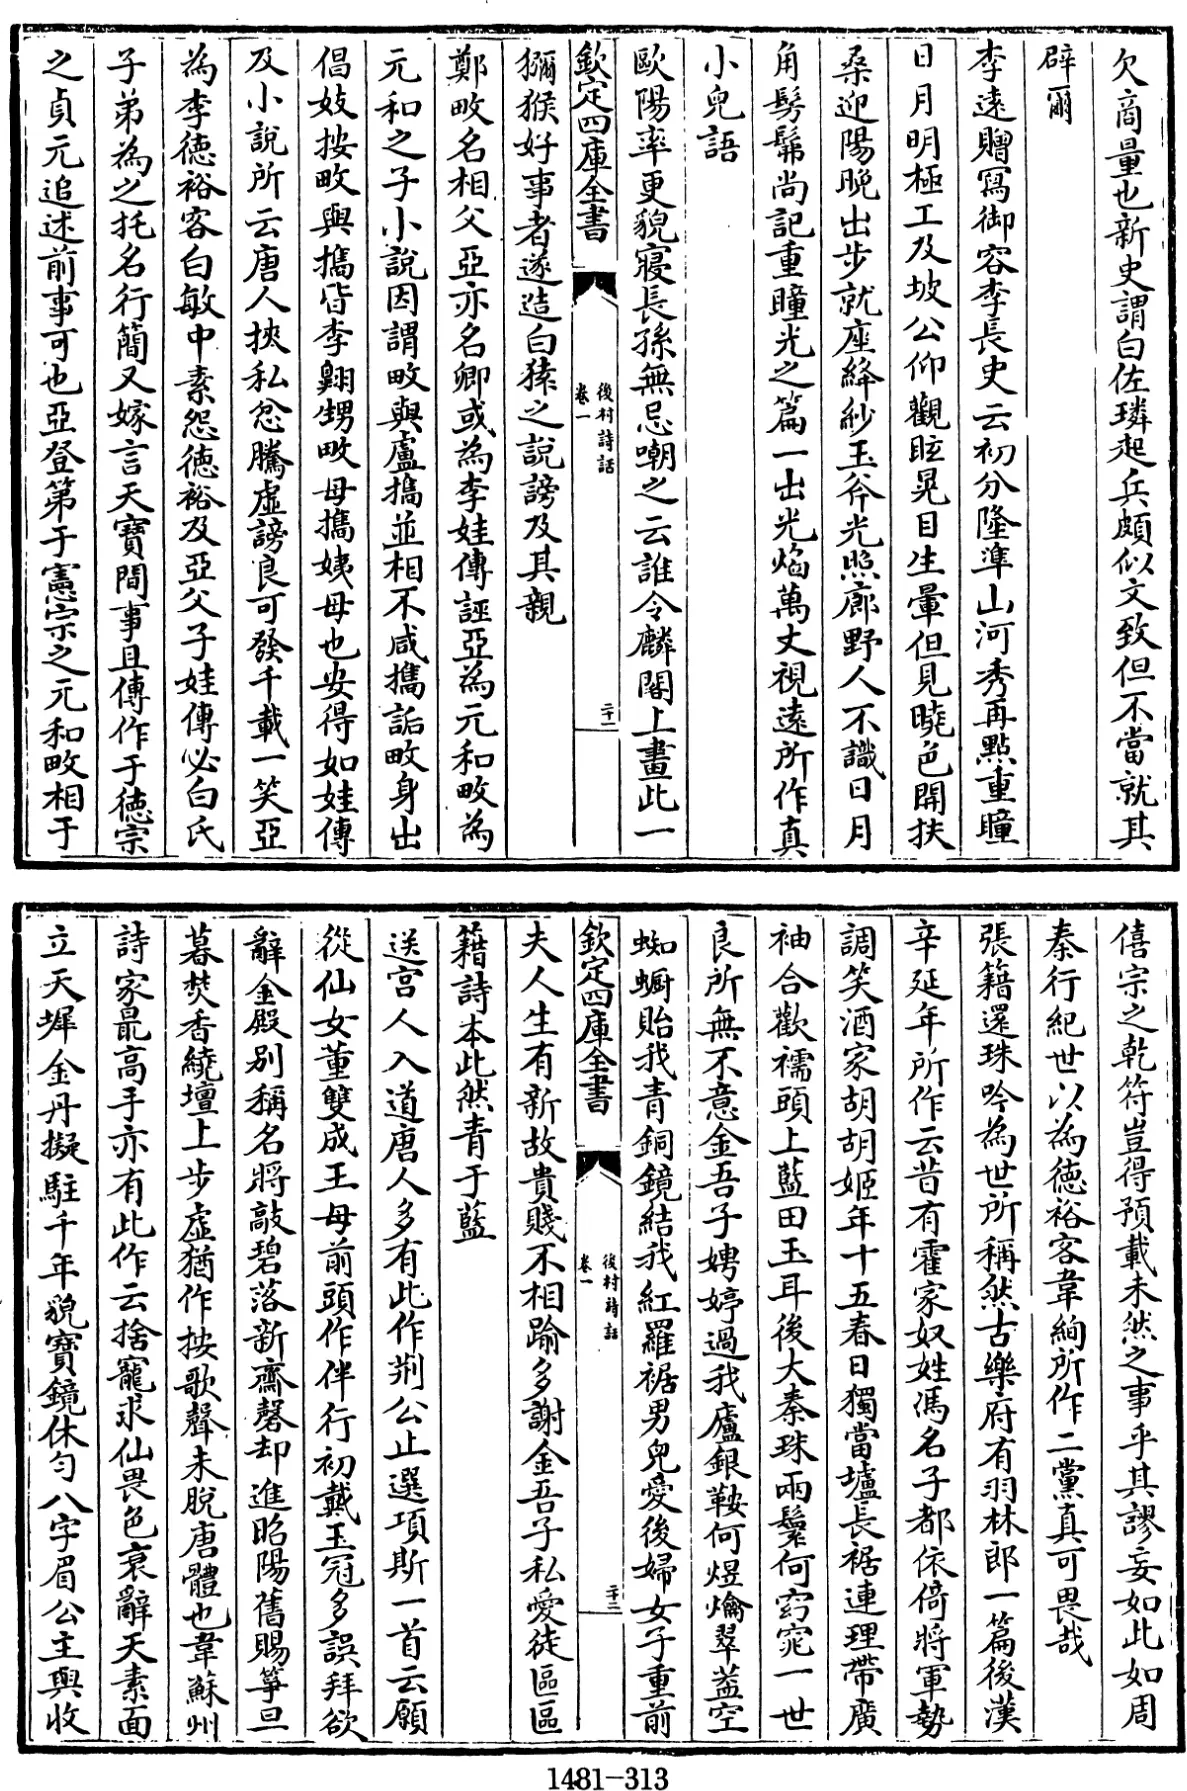 欠商量也新史謂白佐璘起兵頗似文致但不當就其
辟爾
李遠贈寫御容李長史云初分隆準山河秀再點重瞳
日月明極工及坡公仰觀眩晃目生暈但見曉色開扶
桑迎陽晚出步就座絳紗玉斧光照廊野人不識日月
角髣髴尚記重瞳光之篇一出光焰萬丈視遠所作真
小兒語
歐陽率更貌寢長孫無忌嘲之云誰令麟閣上畫此一
欽定四庫全書
後村詩話
卷一
二十一
獼猴好事者遂造白猿之說謗及其親
鄭畋名相父亞亦名卿或為李娃傳誣亞為元和畋為
元和之子小說因謂畋與盧攜並相不咸攜詬畋身出
倡妓按畋與攜皆李翺甥畋母攜姨母也安得如娃傳
及小說所云唐人挾私忿騰虛謗良可發千載一笑亞
為李德裕客白敏中素怨德裕及亞父子娃傳必白氏
子弟為之托名行簡又嫁言天寶間事且傳作于德宗
之貞元追述前事可也亞登第于憲宗之元和畋相于
僖宗之乾符豈得預載未然之事乎其謬妄如此如周
秦行紀世以為德裕客韋絢所作二黨真可畏哉
張籍還珠吟為世所稱然古樂府有羽林郎一篇後漢
辛延年所作云昔有霍家奴姓馮名子都依倚將軍勢
調笑酒家胡胡姬年十五春日獨當壚長裾連理帶廣
袖合歡襦頭上藍田玉耳後大秦珠兩鬟何窈窕一世
良所無不意金吾子娉婷過我廬銀鞍何煜爚翠蓋空
踟躕貽我青銅鏡結我紅羅裾男兒愛後婦女子重前
欽定四庫全書
後村詩話
卷一
二十二
夫人生有新故貴賤不相踰多謝金吾子私愛徒區區
籍詩本此然青于藍
送宮人入道唐人多有此作荆公止選項斯一首云願
從仙女董雙成王母前頭作伴行初戴玉冠多誤拜欲
辭金殿別稱名將敲碧落新齋磬却進昭陽舊賜箏旦
暮焚香繞壇上步虛猶作按歌聲未脫唐體也韋蘇州
詩家最高手亦有此作云捨寵求仙畏色衰辭天素面
立天墀金丹擬駐千年貌寶鏡休勻八字眉公主與收
1481-313